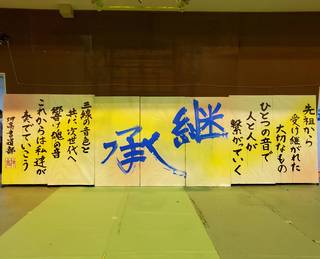 先祖から
受け継がれた
大切なもの
ひとつの音で
人と人が
繋がっていく
継承
三線の音色と
共に次世代へ
響け魂の音
これからは私達が
奏でていこう
書道部